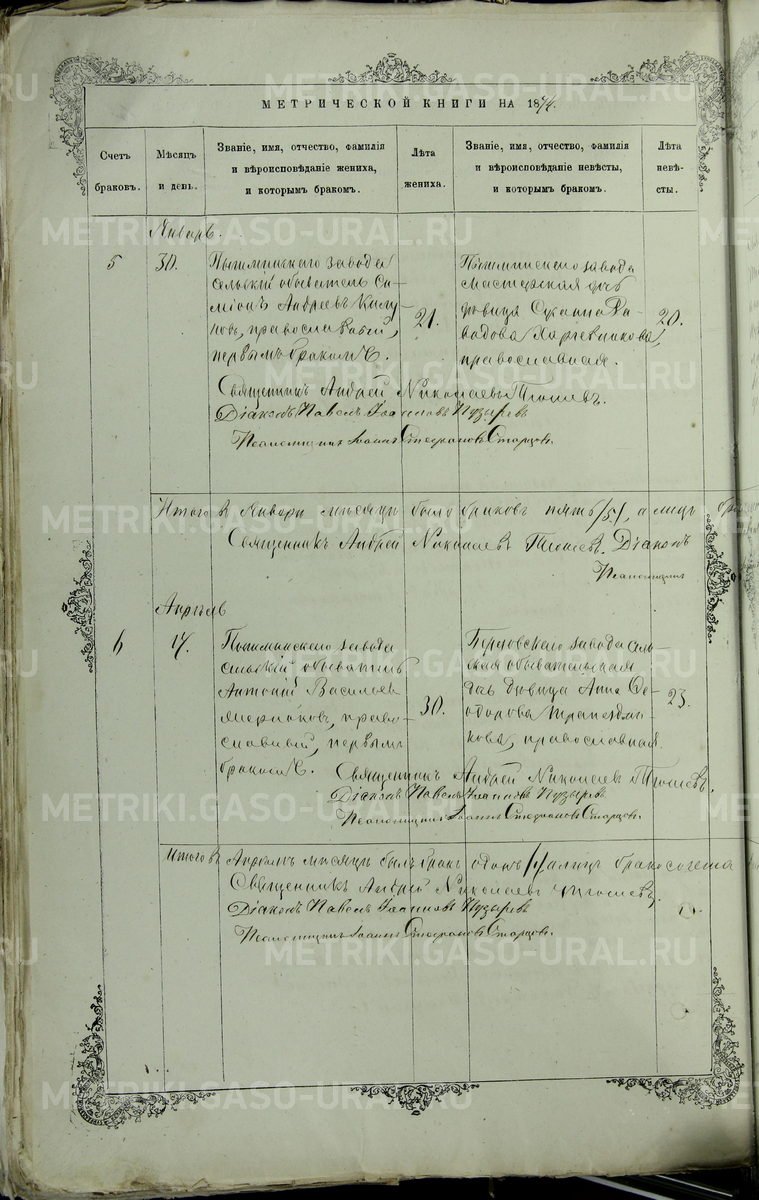 МЕТРИЧЕСКОЙ КНИГИ НА 1874.
Счетъ браковъ.
Мѣсяцъ и день.
Званіе, имя, отчество, фамилія
и вѣроисповѣданіе жениха,
и которымъ бракомъ.
Лѣта жениха.
Званіе, имя, отчество, фамилія
и вѣроисповѣданіе невѣсты,
и которымъ бракомъ.
Лѣта невѣ-
сты.
Январь.
5
30.
Пышминскаго завода
сельскій обыватель Си-
міонъ Андреевъ
православный,
первымъ бракомъ.
21.
Пышминскаго завода
мастерская дочь
дѣвица Сусанна Да-
видова
православная.
20.
Священникъ Андрей Николаевъ
Діаконъ Павелъ Іоанновъ Пузыревъ
Псаломщикъ Іоаннъ Стефановъ Старцовъ.
Итого въ Январѣ мѣсяцѣ было браковъ пять /5/, а лицъ бра
Священникъ Андрей Николаевъ Діаконъ
Псаломщикъ
Апрѣль
6
14.
Пышминскаго завода
сельскій обыватель
Антоній Васильевъ
право-
славный, первымъ
бракомъ.
30.
Березовскаго завода сель-
ская обывательская
дочь дѣвица Анна Ѳе-
одорова Трапезни-
кова, православная.
23.
Священникъ Андрей Николаевъ
Діаконъ Павелъ Іоанновъ Пузыревъ
Псаломщикъ Іоаннъ Стефановъ Старцовъ.
Итого въ Апрѣлѣ мѣсяцѣ былъ бракъ одинъ /1/ а лицъ
Священникъ Андрей Николаевъ
Діаконъ Павелъ Іоанновъ Пузыревъ
Псаломщикъ Іоаннъ Стефановъ Старцовъ.
METRIKI.GASO-URAL.RU